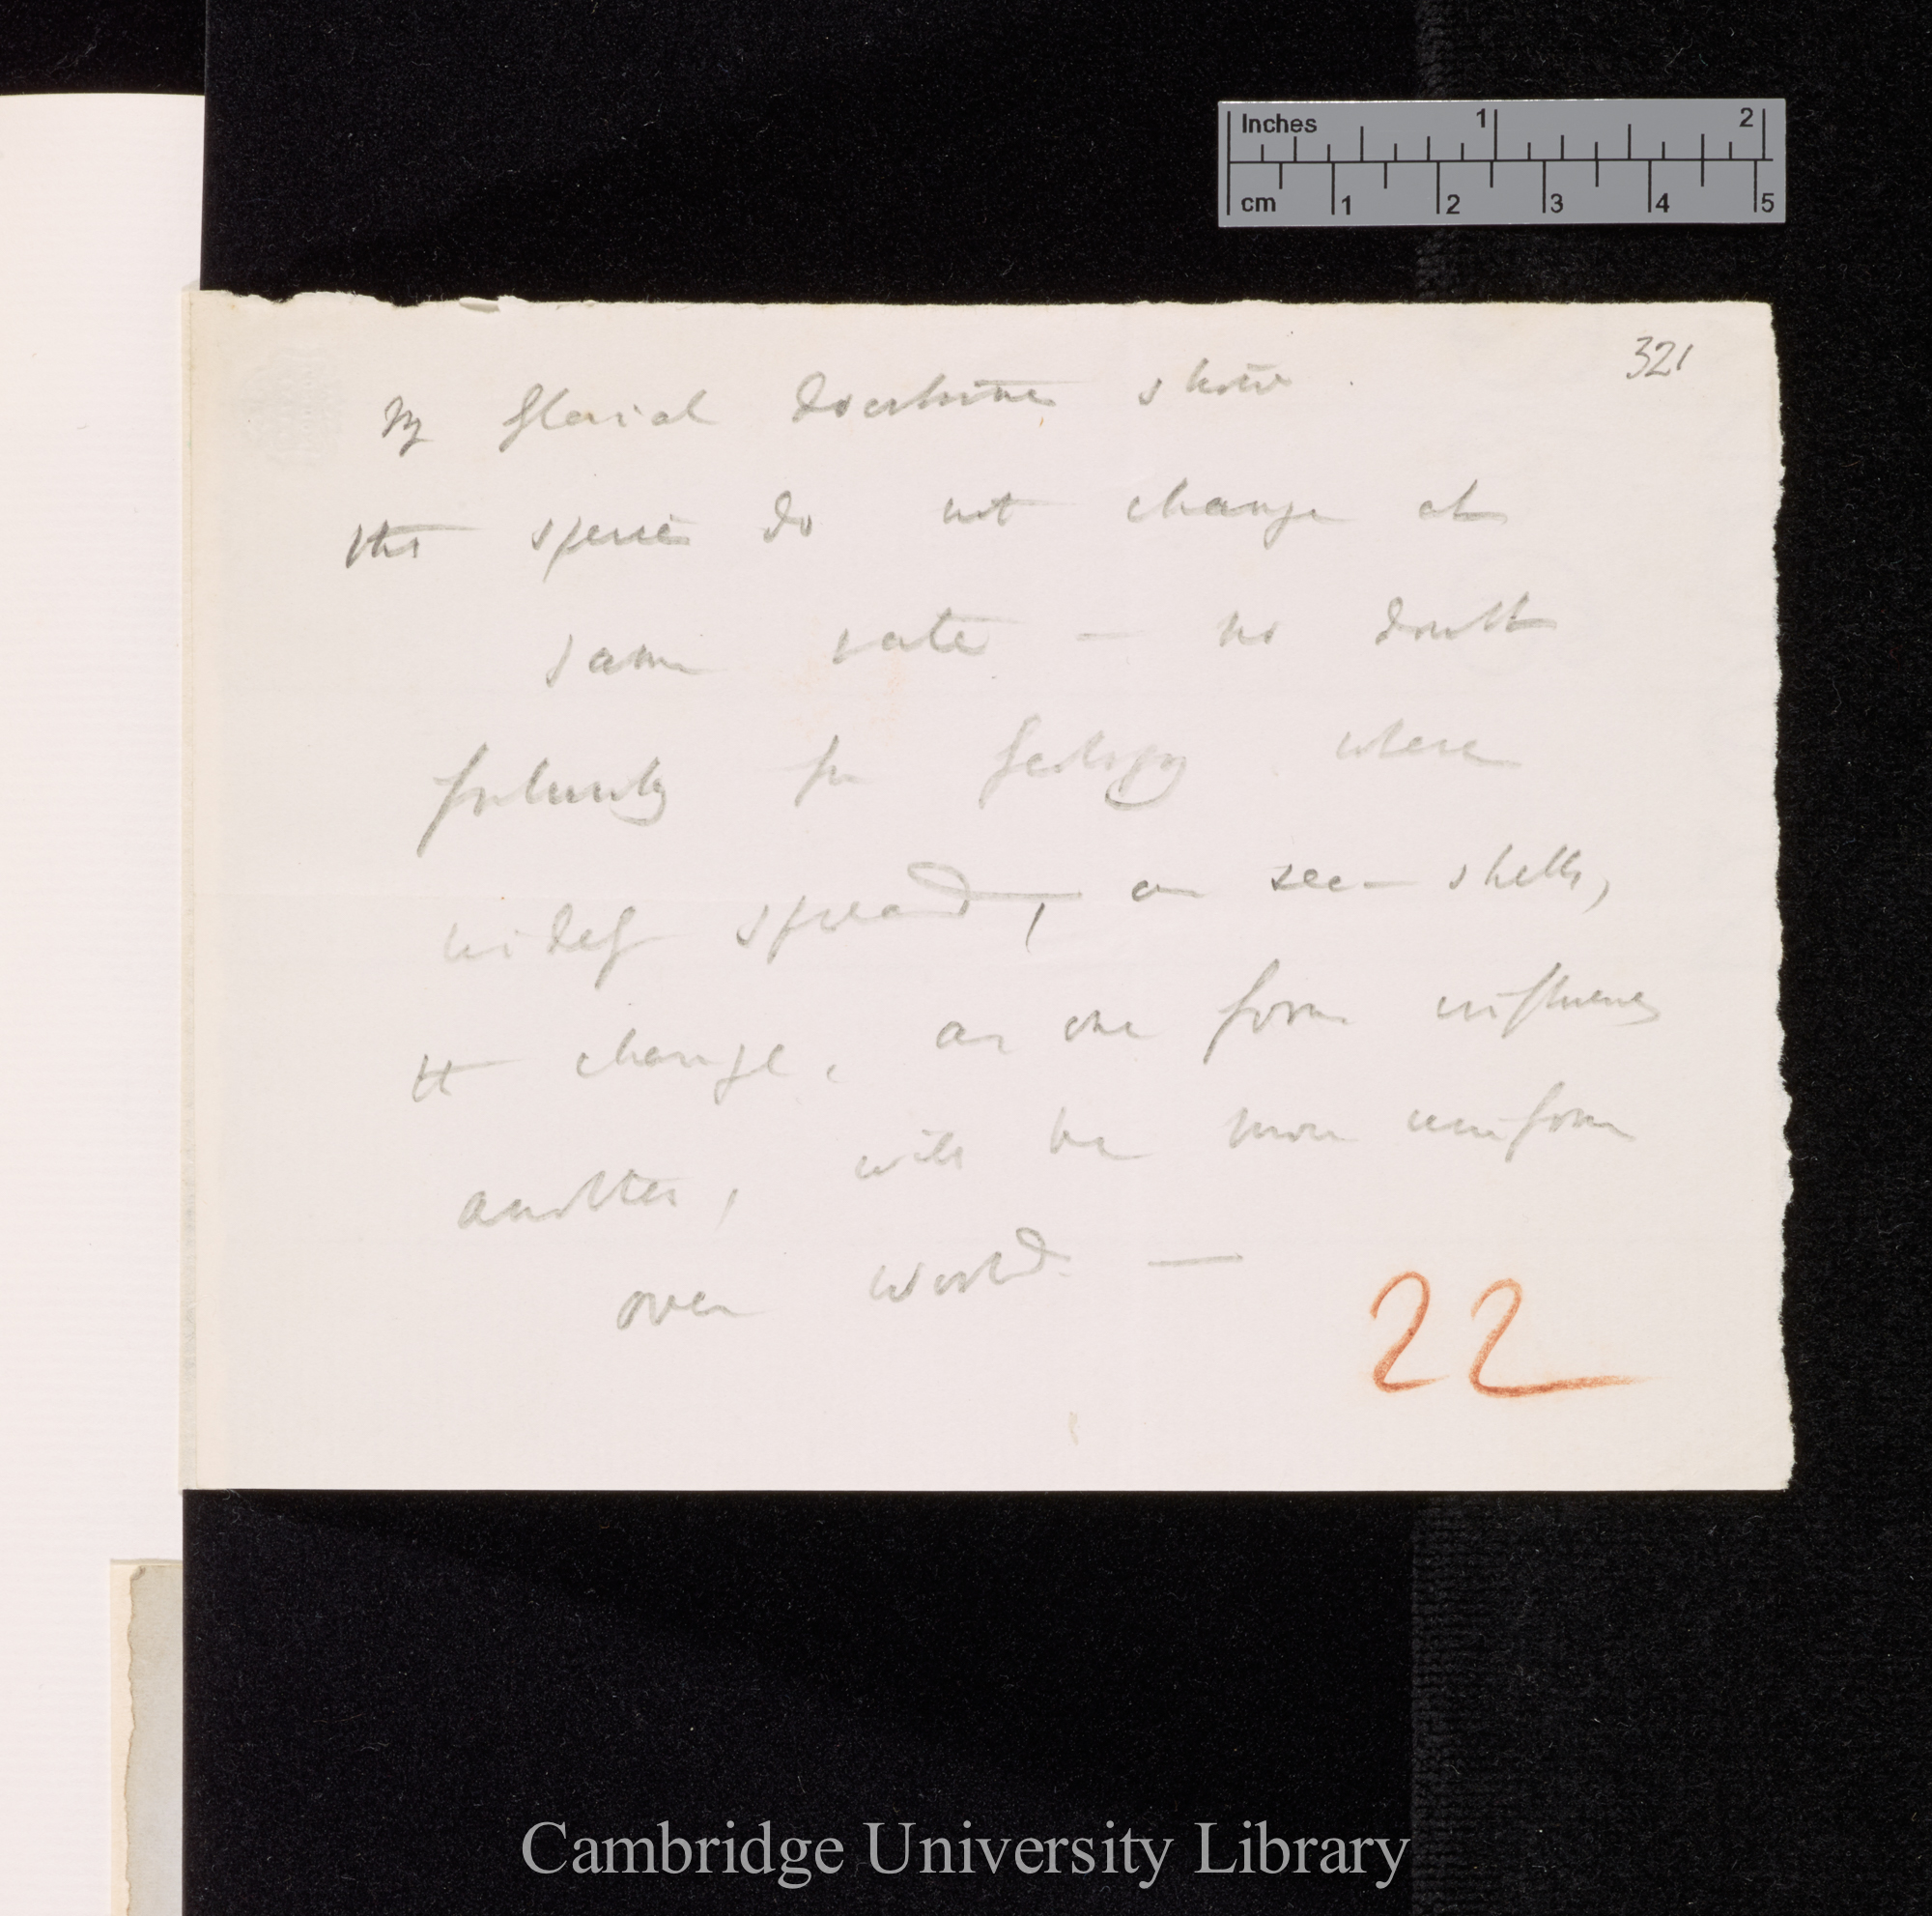 Inches 1 2
cm 1 2 3 4 5
321
My Glacial doctrine shows
that species do not change at
same rate — no doubt
fortunately for Geology where
widely spread, as sea-shells,
the change, as one form influences
another, will be more uniform
over world. —
22
Cambridge University Library